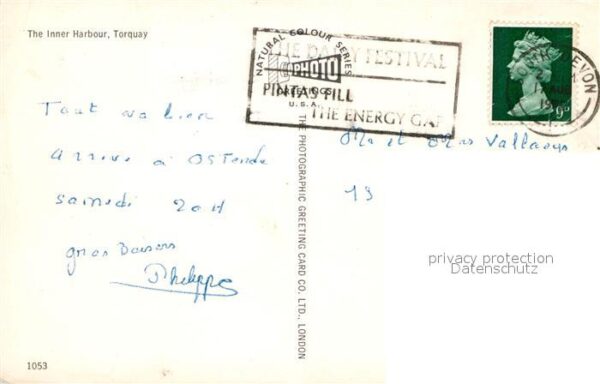 The Inner Harbour, Torquay
NATURAL COLOUR SERIES
PHOTO
GREETINGS
U.S.A.
THE DAIRY FESTIVAL
PINTAS FILL
THE ENERGY GAP
DEVON
AUG
9D
Tout va bien
Arrive à Ostende
samedi 20H
gros Baisers
Philippe
THE PHOTOGRAPHIC GREETING CARD CO. LTD., LONDON
Mr et Mrs Vallaeys
13
privacy protection
Datenschutz
1053